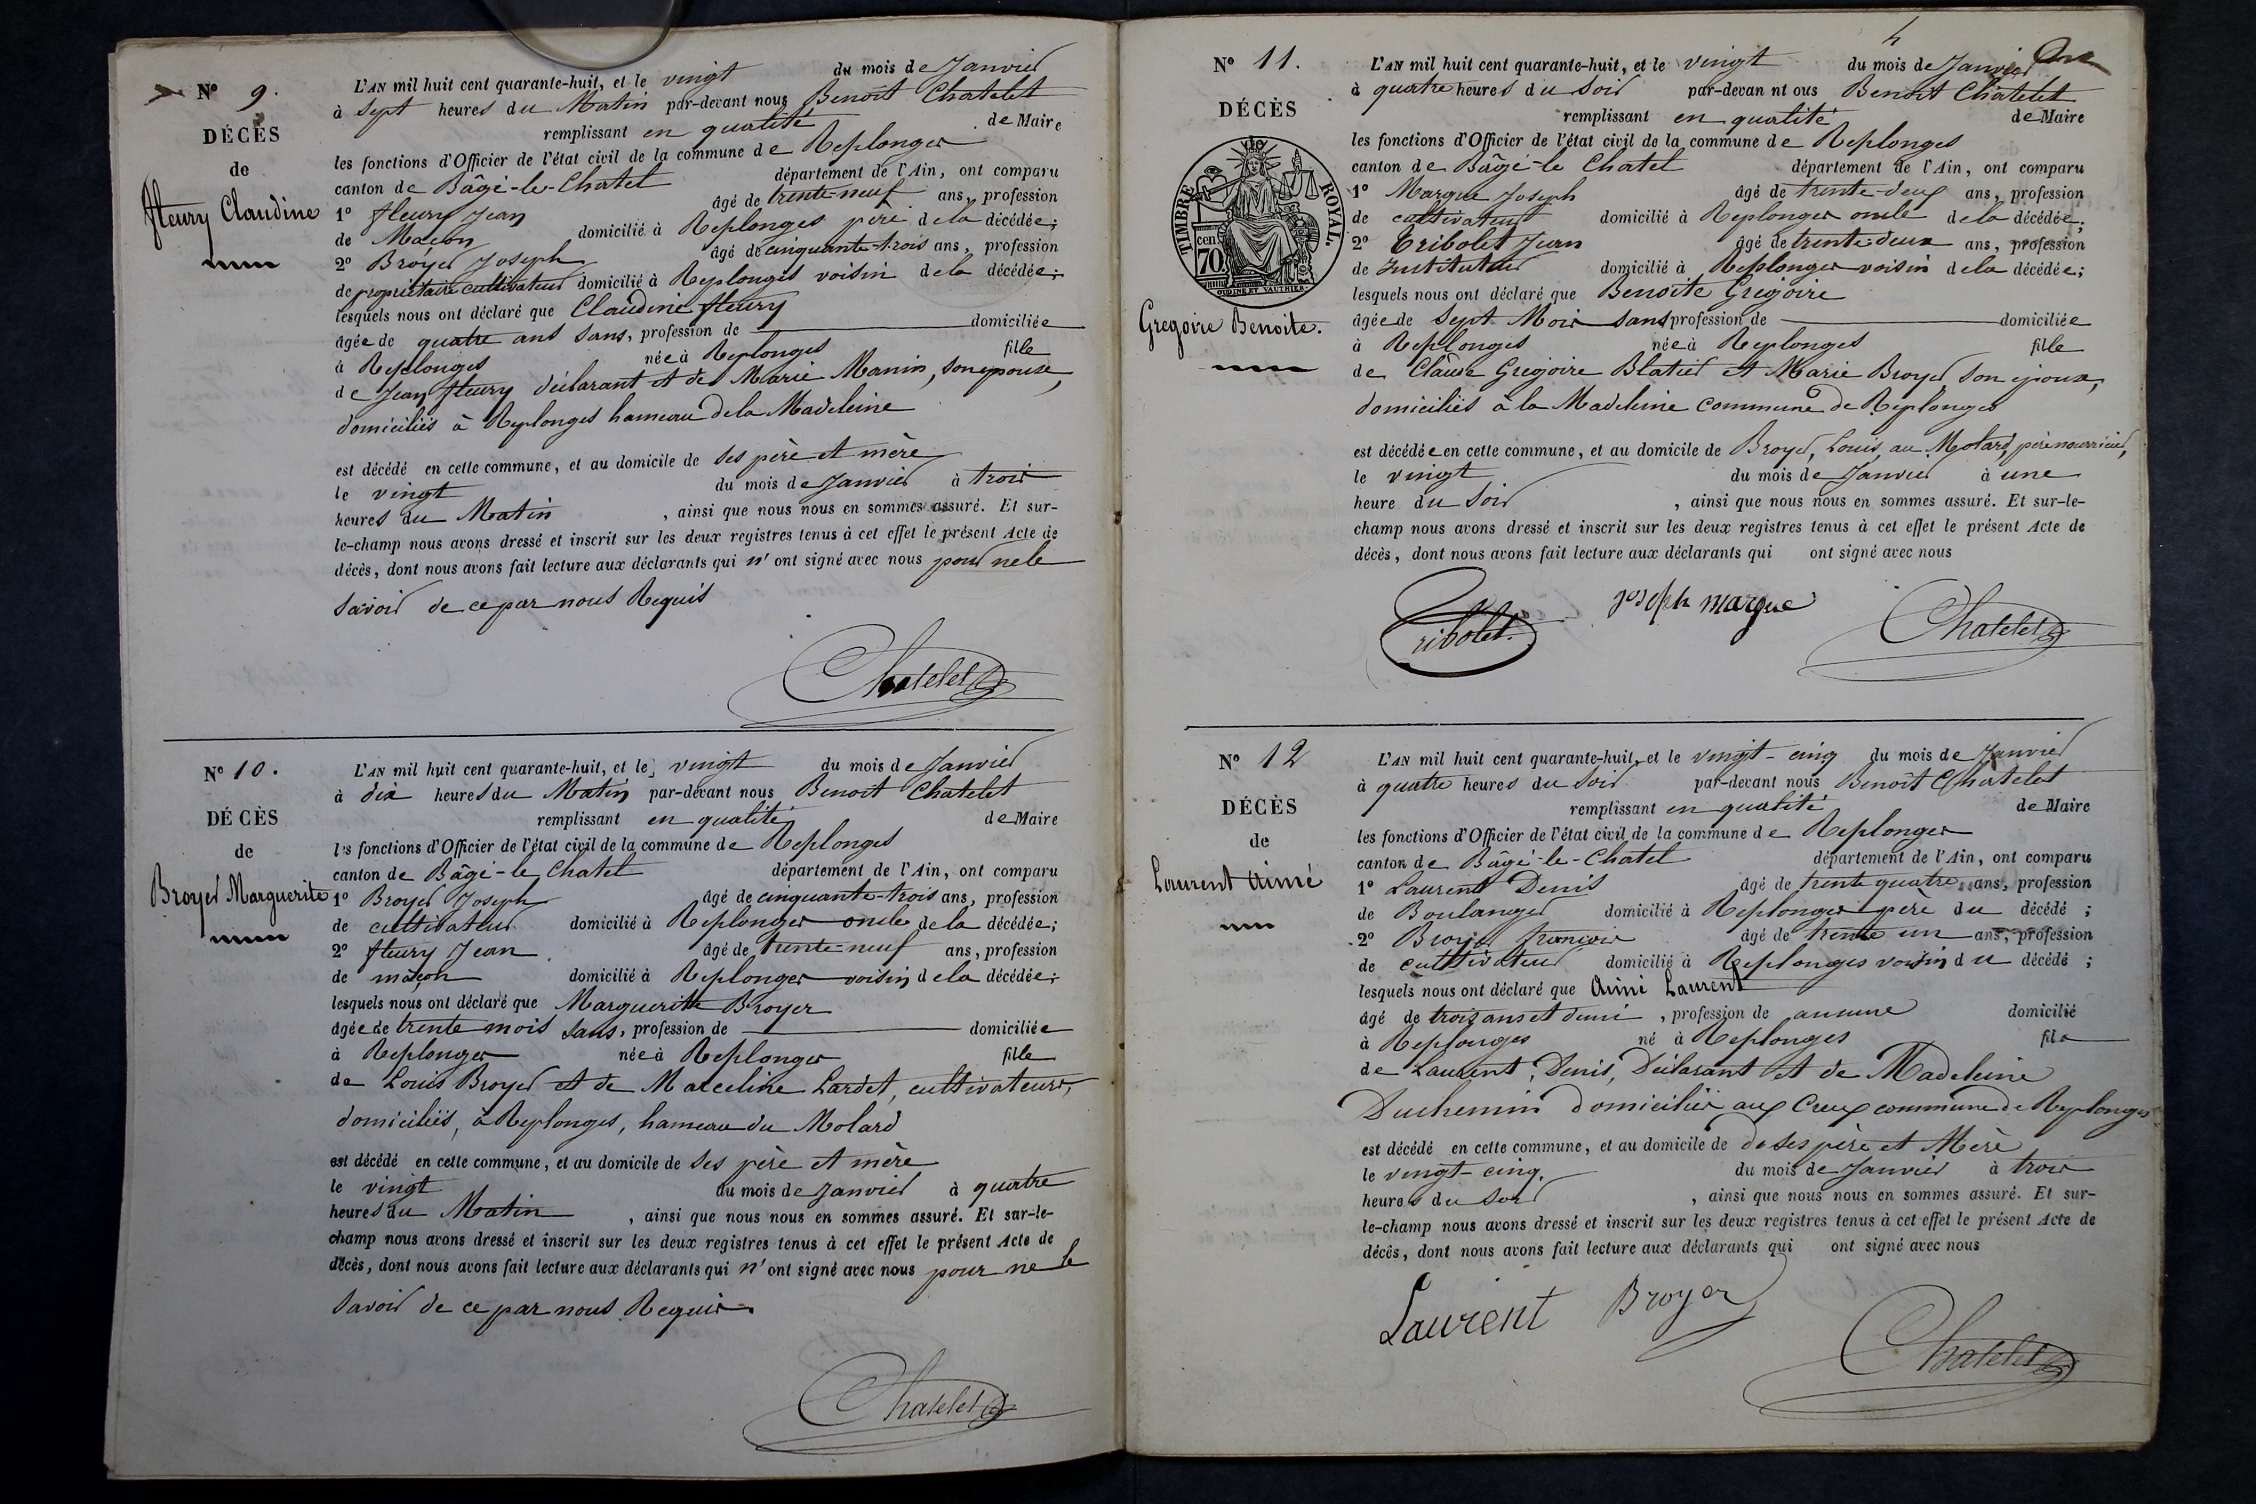 N° 9.
DÉCÈS
de
fleury Claudine
L'AN mil huit cent quarante-huit, et le vingt du mois de Janvier
à sept heures du Matin par-devant nous Benoît Chatelet
remplissant en qualité de Maire
les fonctions d'Officier de l'état civil de la commune de Replonges
canton de Bâgé-le-Chatel département de l'Ain, ont comparu
1° fleury Jean âgé de trente-neuf ans, profession
de Maçon domicilié à Replonges père de la décédée;
2° Broyer Joseph âgé de cinquante-trois ans, profession
de propriétaire cultivateur domicilié à Replonges voisin de la décédée;
lesquels nous ont déclaré que Claudine fleury
âgée de quatre ans sans, profession de domiciliée
à Replonges née à Replonges fille
de Jean fleury déclarant et de Marie Manin, son épouse,
domiciliés à Replonges hameau de la Madeleine
est décédé en cette commune, et au domicile de ses père et mère
le vingt du mois de Janvier à trois
heures du Matin, ainsi que nous nous en sommes assuré. Et sur-
le-champ nous avons dressé et inscrit sur les deux registres tenus à cet effet le présent Acte de
décès, dont nous avons fait lecture aux déclarants qui n'ont signé avec nous pour ne le
savoir de ce par nous Requis
Chatelet
N° 10.
DÉCÈS
de
Broyer Marguerite
L'AN mil huit cent quarante-huit, et le vingt du mois de Janvier
à dix heures du Matin par-devant nous Benoit Chatelet
remplissant en qualité de Maire
les fonctions d'Officier de l'état civil de la commune de Replonges
canton de Bâgé-le-Chatel département de l'Ain, ont comparu
1° Broyer Joseph âgé de cinquante-trois ans, profession
de cultivateur domicilié à Replonges oncle de la décédée;
2° fleury Jean âgé de trente-neuf ans, profession
de maçon domicilié à Replonges voisin de la décédée;
lesquels nous ont déclaré que Marguerite Broyer
âgée de trente mois sans, profession de domiciliée
à Replonges née à Replonges fille
de Louis Broyer et de Marceline Lardet, cultivateurs,
domiciliés, à Replonges, hameau du Molard
est décédé en cette commune, et au domicile de ses père et mère
le vingt du mois de Janvier à quatre
heures du Matin, ainsi que nous nous en sommes assuré. Et sur-le-
champ nous avons dressé et inscrit sur les deux registres tenus à cet effet le présent Acte de
décès, dont nous avons fait lecture aux déclarants qui n'ont signé avec nous pour ne le
savoir de ce par nous Requis.
Chatelet
4
N° 11.
DÉCÈS
TIMBRE ROYAL.
cen 70.
OUDINE ET VAUTHIER.
Gregoire Benoite.
L'AN mil huit cent quarante-huit, et le vingt du mois de Janvier
à quatre heures du Soir par-devan nt ous Benoît Chatelet
remplissant en qualité de Maire
les fonctions d'Officier de l'état civil de la commune de Replonges
canton de Bâgé-le Chatel département de l'Ain, ont comparu
1° Margue Joseph âgé de trente-deux ans, profession
de cultivateur domicilié à Replonges oncle de la décédée;
2° Tribolet Jean âgé de trente-deux ans, profession
de Instituteur domicilié à Replonges voisin de la décédée;
lesquels nous ont déclaré que Benoite Gregoire
âgée de Sept Mois sans profession de domiciliée
à Replonges née à Replonges fille
de Claude Gregoire Blatier et Marie Broyer son épouse,
domiciliés à la Madeleine commune de Replonges
est décédée en cette commune, et au domicile de Broyer, Louis, au Molard, père nourricier,
le vingt du mois de Janvier à une
heure du Soir, ainsi que nous nous en sommes assuré. Et sur-le-
champ nous avons dressé et inscrit sur les deux registres tenus à cet effet le présent Acte de
décès, dont nous avons fait lecture aux déclarants qui ont signé avec nous
Tribolet. joseph margue Chatelet
N° 12
DÉCÈS
de
Laurent Aimé
L'AN mil huit cent quarante-huit, et le vingt-cinq du mois de Janvier
à quatre heures du Soir par-devant nous Benoît Chatelet
remplissant en qualité de Maire
les fonctions d'Officier de l'état civil de la commune de Replonges
canton de Bâgé-le-Chatel département de l'Ain, ont comparu
1° Laurent Denis âgé de trente quatre ans, profession
de Boulanger domicilié à Replonges père du décédé;
2° Broyer françois âgé de trente un ans, profession
de cultivateur domicilié à Replonges voisin du décédé;
lesquels nous ont déclaré que Aimé Laurent
âgé de trois ans et demi, profession de aucune domicilié
à Replonges né à Replonges fils
de Laurent, Denis, Déclarant et de Madeleine
Duchemin domiciliés aux Creux commune de Replonges
est décédé en cette commune, et au domicile de de ses père et Mère
le vingt-cinq. du mois de Janvier à trois
heures du Soir, ainsi que nous nous en sommes assuré. Et sur-
le-champ nous avons dressé et inscrit sur les deux registres tenus à cet effet le présent Acte de
décès, dont nous avons fait lecture aux déclarants qui ont signé avec nous
Laurent Broyer Chatelet